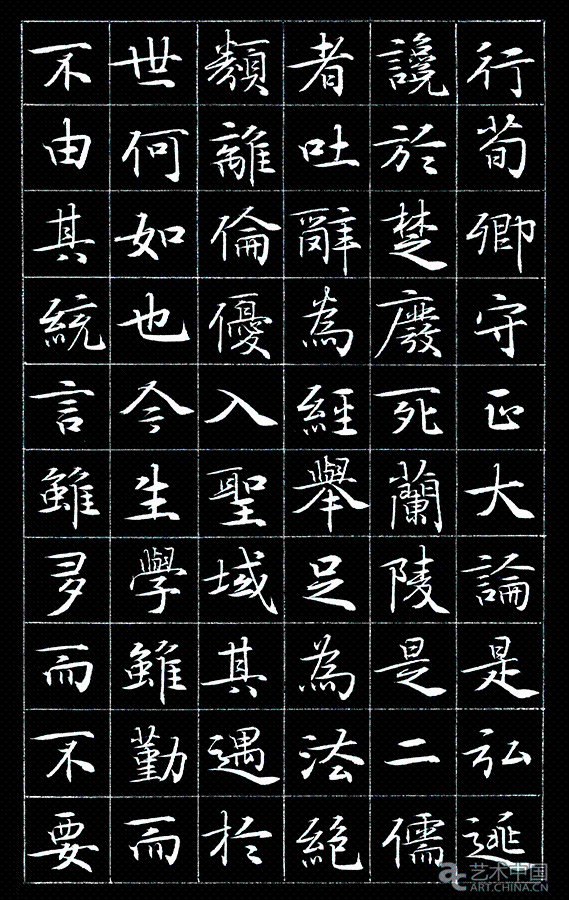 行荀卿守正大論是弘逃
讒於楚廢死蘭陵是二儒
者吐辭為經舉足為法絕
類離倫優入聖域其遇於
世何如也今生學雖勤而
不由其統言雖多而不要
艺术中国
ART.CHINA.CN